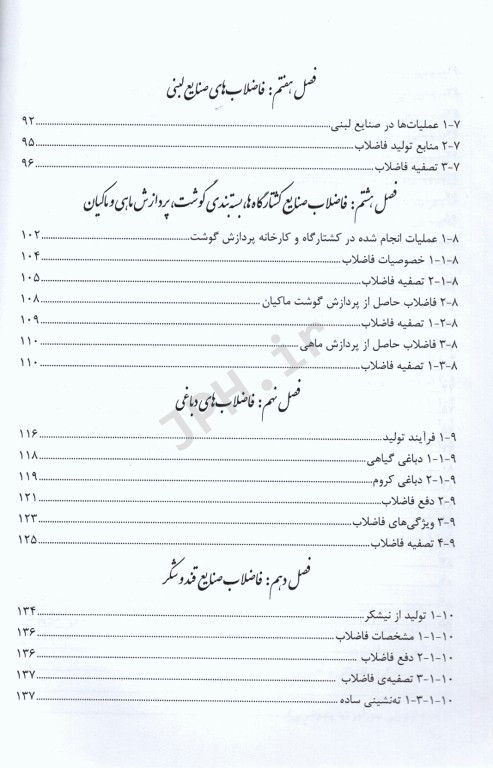 فصل هفتم: فاضلاب‌های صنایع لبنی
۷-۱ عملیات‌ها در صنایع لبنی ۹۲
۷-۲ منابع تولید فاضلاب ۹۵
۷-۳ تصفیه فاضلاب ۹۶
فصل هشتم: فاضلاب صنایع کشتارگاه‌ها، بسته‌بندی گوشت، پردازش ماهی و ماکیان
۸-۱ عملیات انجام شده در کشتارگاه و کارخانه پردازش گوشت ۱۰۲
۸-۱-۱ خصوصیات فاضلاب ۱۰۴
۸-۱-۲ تصفیه فاضلاب ۱۰۵
۸-۲ فاضلاب حاصل از پردازش گوشت ماکیان ۱۰۸
۸-۲-۱ تصفیه فاضلاب ۱۰۹
۸-۳ فاضلاب حاصل از پردازش ماهی ۱۱۰
۸-۳-۱ تصفیه فاضلاب ۱۱۰
JPH.ir
فصل نهم: فاضلاب‌های دباغی
۹-۱ فرآیند تولید ۱۱۶
۹-۱-۱ دباغی گیاهی ۱۱۸
۹-۱-۲ دباغی کروم ۱۱۹
۹-۲ دفع فاضلاب ۱۲۱
۹-۳ ویژگی‌های فاضلاب ۱۲۳
۹-۴ تصفیه فاضلاب ۱۲۵
فصل دهم: فاضلاب صنایع قند و شکر
۱۰-۱ تولید از نیشکر ۱۳۴
۱۰-۱-۱ مشخصات فاضلاب ۱۳۶
۱۰-۱-۲ دفع فاضلاب ۱۳۶
۱۰-۱-۳ تصفیه‌ی فاضلاب ۱۳۷
۱۰-۱-۳-۱ ته‌نشینی ساده ۱۳۷